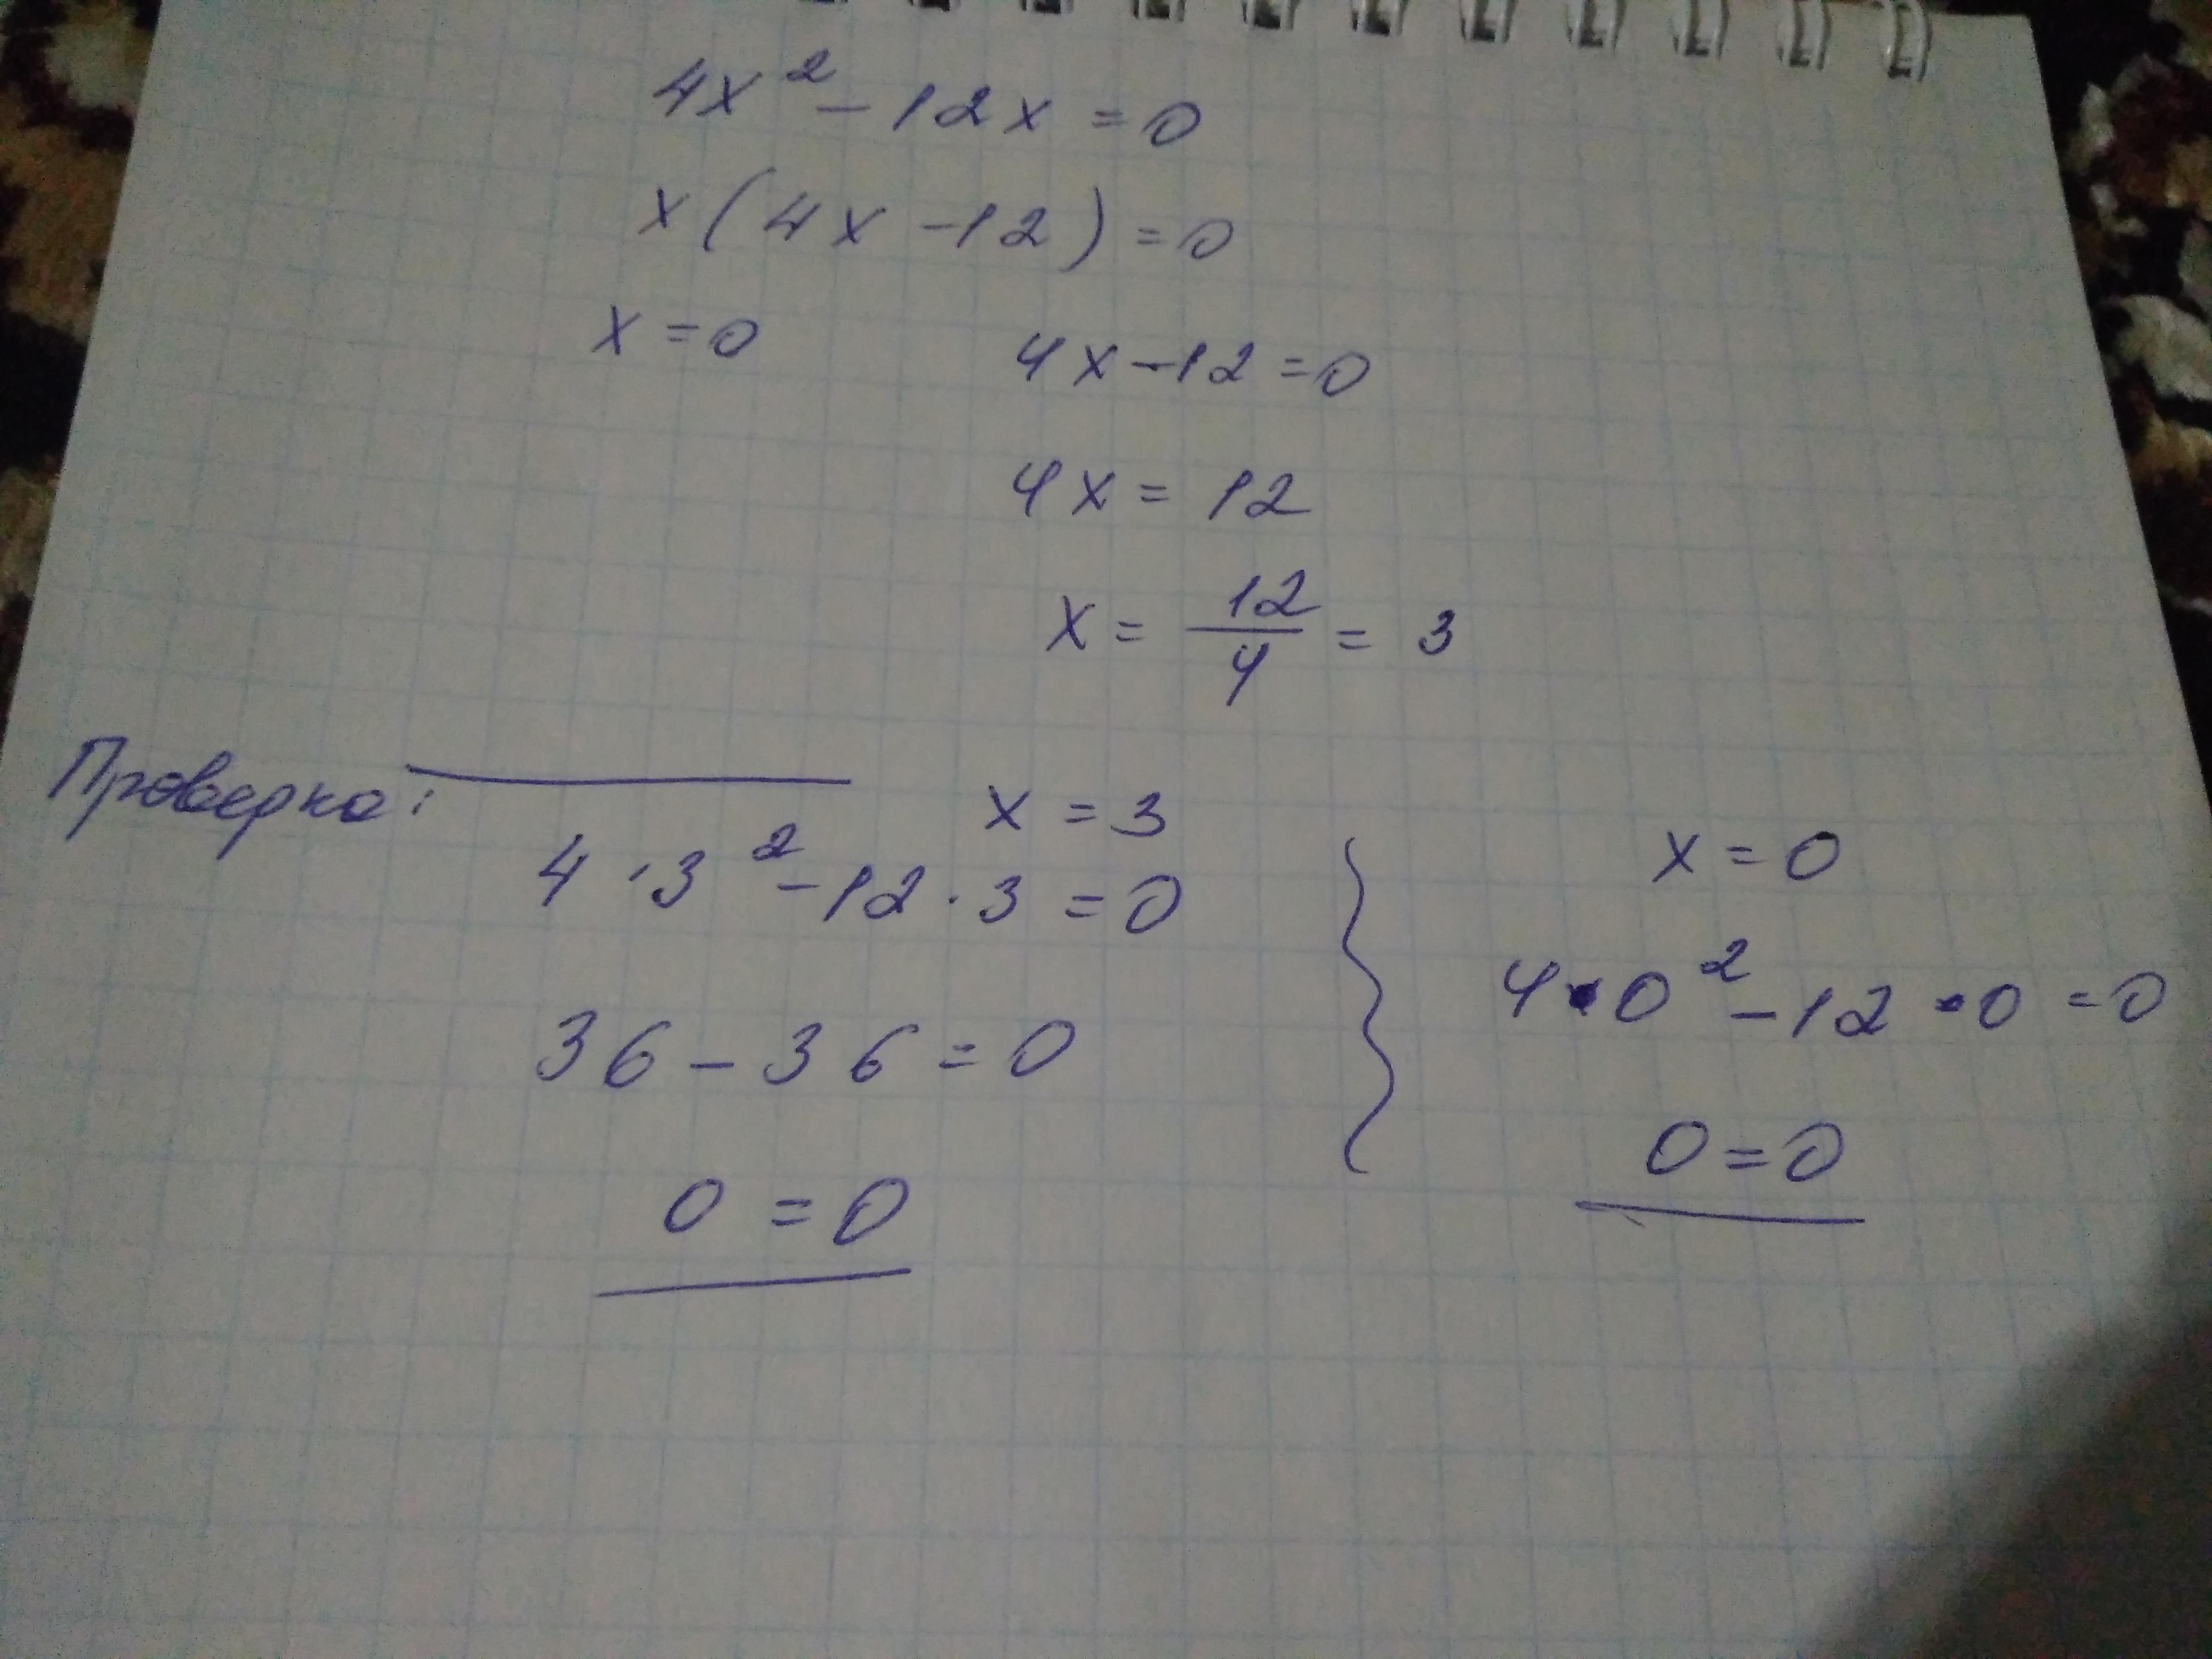 4x² - 12x = 0
x(4x - 12) = 0
x = 0 4x - 12 = 0
4x = 12
x = 12/4 = 3
Проверка:
x = 3
4 · 3² - 12 · 3 = 0
36 - 36 = 0
0 = 0
x = 0
4 · 0² - 12 · 0 = 0
0 = 0